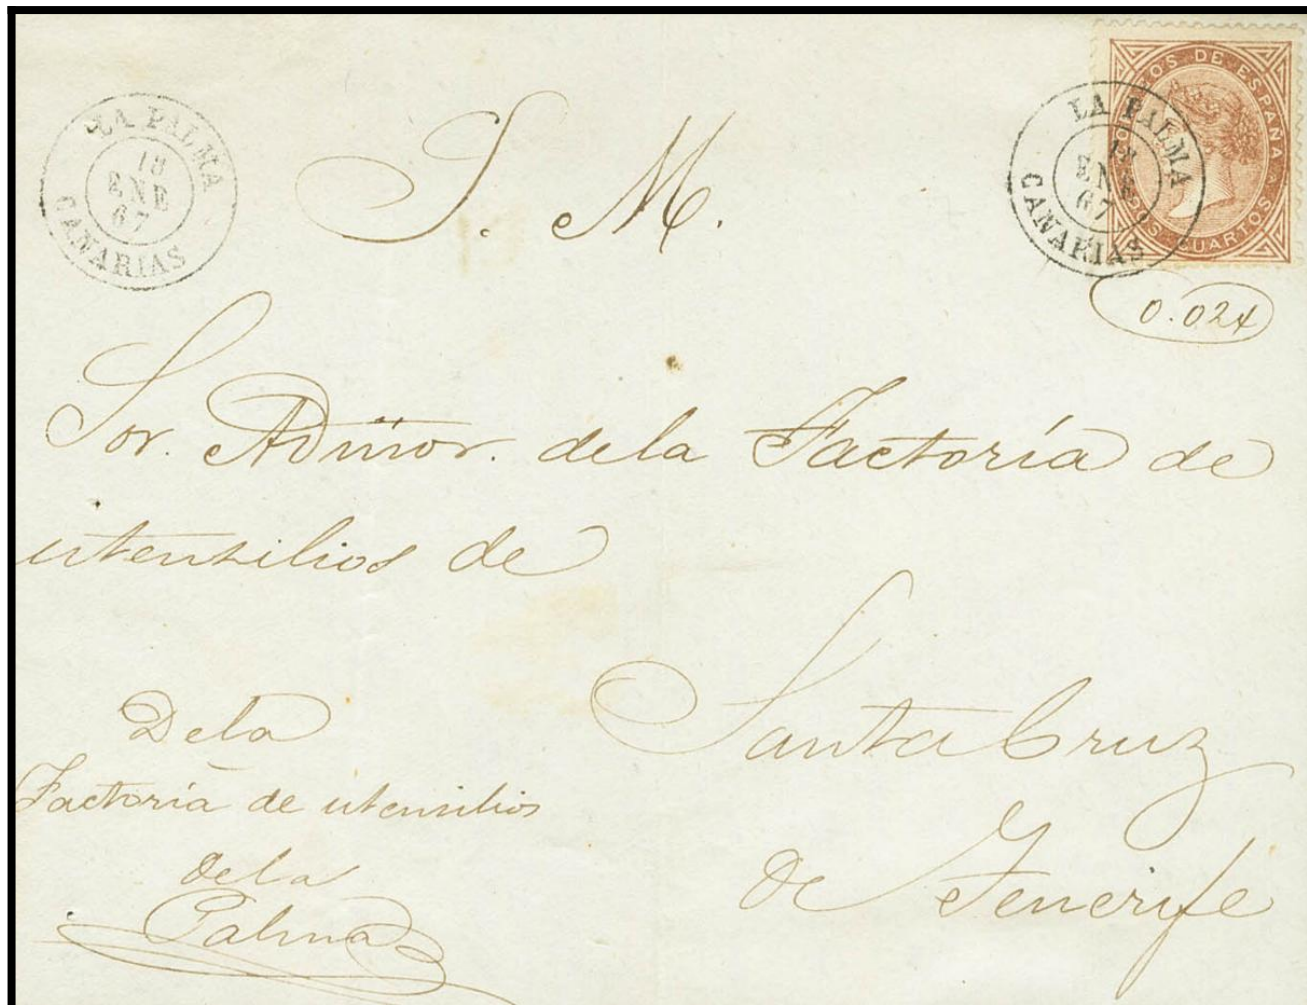 LA PALMA
18
ENE
67
CANARIAS
S. M.
CORREOS DE ESPAÑA
CUARTOS
LA PALMA
18
ENE
67
CANARIAS
0.024
Sor. Admor. dela Factoría de
utensilios de
Santa Cruz
de Tenerife
Dela
Factoría de utensilios
dela
Palma